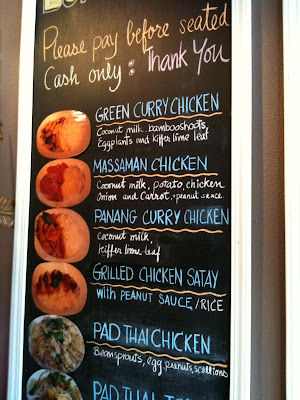 Please pay before seated
Cash only : Thank You
GREEN CURRY CHICKEN
Coconut milk, bambooshoots,
Eggplants and kiffer lime leaf
MASSAMAN CHICKEN
Coconut milk, potato, chicken
Onion and Carrot, peanut sauce
PANANG CURRY CHICKEN
Coconut milk,
Kiffer lime leaf
GRILLED CHICKEN SATAY
with PEANUT SAUCE/RICE
PAD THAI CHICKEN
Beansprouts, egg, peanuts, scallions
PAD THAI